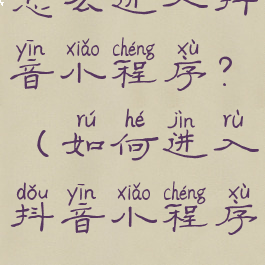 怎么进入抖
yīn xiǎo chéng xù
音小程序?
rú hé jìn rù
(如何进入
dǒu yīn xiǎo chéng xù
抖音小程序